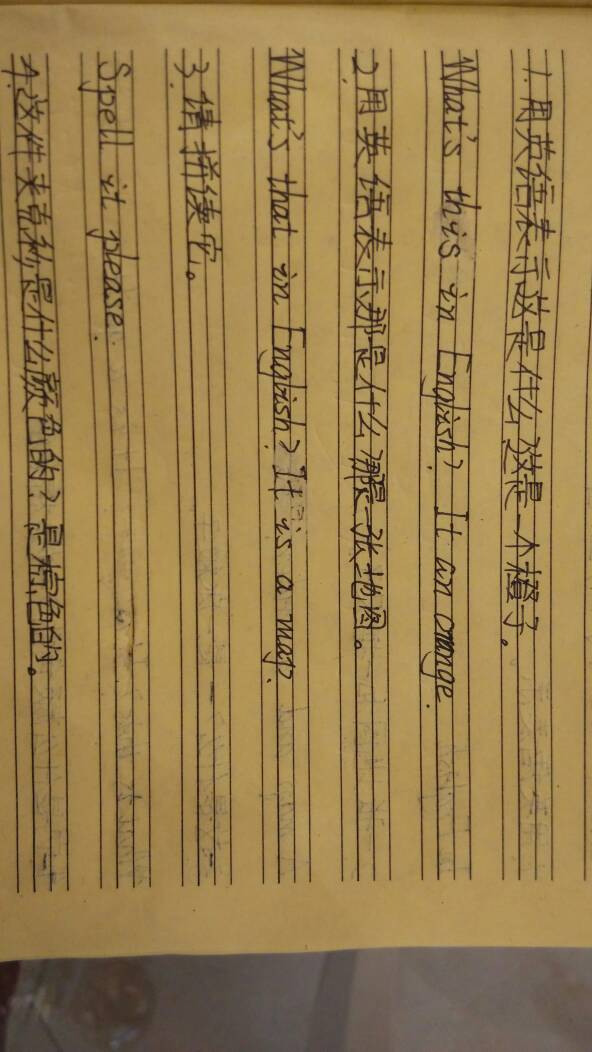 1.用英语表示这是什么?这是一个橙子。
What's this in English? It an orange.
2.用英语表示那是什么?那是张地图。
What's that in English? It is a map.
3.请拼读它。
Spell it please.
4.这件夹克衫是什么颜色的?是棕色的。